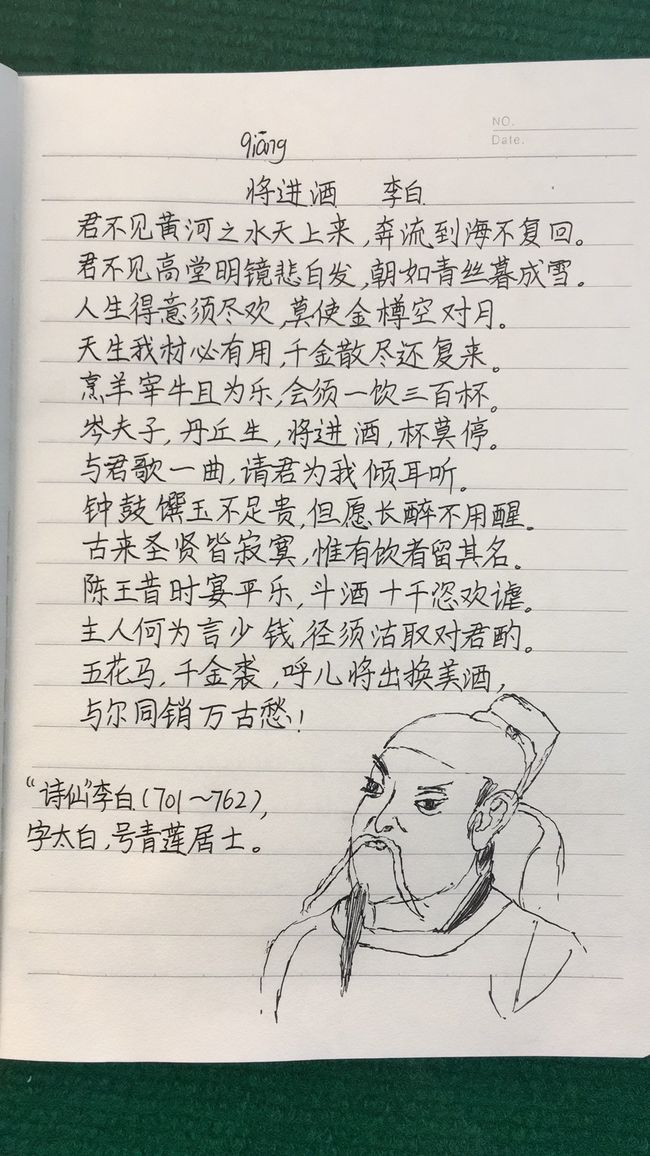 NO.
Date.
qiāng
将进酒 李白
君不见黄河之水天上来,奔流到海不复回。
君不见高堂明镜悲白发,朝如青丝暮成雪。
人生得意须尽欢,莫使金樽空对月。
天生我材必有用,千金散尽还复来。
烹羊宰牛且为乐,会须一饮三百杯。
岑夫子,丹丘生,将进酒,杯莫停。
与君歌一曲,请君为我倾耳听。
钟鼓馔玉不足贵,但愿长醉不用醒。
古来圣贤皆寂寞,惟有饮者留其名。
陈王昔时宴平乐,斗酒十千恣欢谑。
主人何为言少钱,径须沽取对君酌。
五花马,千金裘,呼儿将出换美酒,
与尔同销万古愁!
“诗仙”李白(701~762),
字太白,号青莲居士。